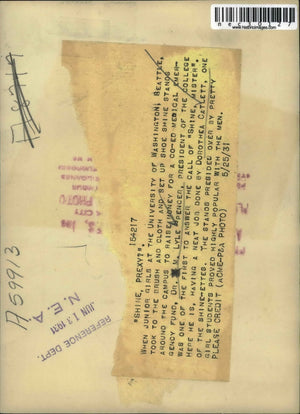 154217
"SHINE, PREXY?"
WHEN JUNIOR GIRLS AT THE UNIVERSITY OF WASHINGTON, SEATTLE,
TOOK TO THE BRUSH AND CLOTH AND SET UP SHOE SHINE STANDS
AROUND THE CAMPUS TO RAISE MONEY FOR A CO-ED MEDICAL EMER-
GENCY FUND, DR. M. LYLE SPENCER, PRESIDENT OF THE COLLEGE
WAS ONE OF THE FIRST TO ANSWER THE CALL OF "SHINE, MISTER".
HERE HE IS, HAVING A NEAT JOB DONE BY DOROTHEA CATLETT, ONE
OF THE SHINE-ETTES. THE STANDS PRESIDED OVER BY PRETTY
GIRL STUDENTS PROVED HIGHLY POPULAR WITH THE MEN.
PLEASE CREDIT (ACME-P&A PHOTO) 5/25/31
A59913
REFERENCE DEPT.
JUN 13 1931
N. E. A.
PHOTO